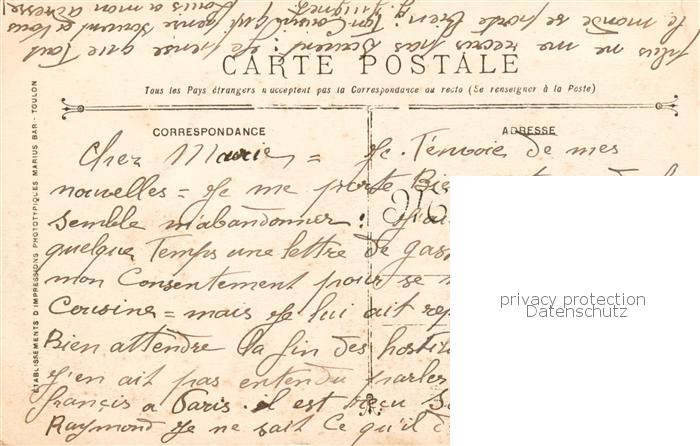 CARTE POSTALE
Tous les Pays étrangers n'acceptent pas la Correspondance au recto (Se renseigner à la Poste)
CORRESPONDANCE
ADRESSE
Cher Maurice = Je T'envoie de mes
nouvelles = Je me porte Bien
semble m'abandonner :
quelque Temps une lettre de
mon Consentement pour se
Cousine = mais Je lui ait
Bien attendre la fin des
J'en ait pas entendu parler
françis a Paris. il est
Raymond Je ne sait Ce qu'il
plus ne me reçois pas souvent : Je pense que Tout
le monde se porte Bien : Ton Cousin qui pense souvent a vous
Louis a mon adresse
ÉTABLISSEMENTS D'IMPRESSIONS PHOTOTYPIQUES MARIUS BAR - TOULON
privacy protection
Datenschutz